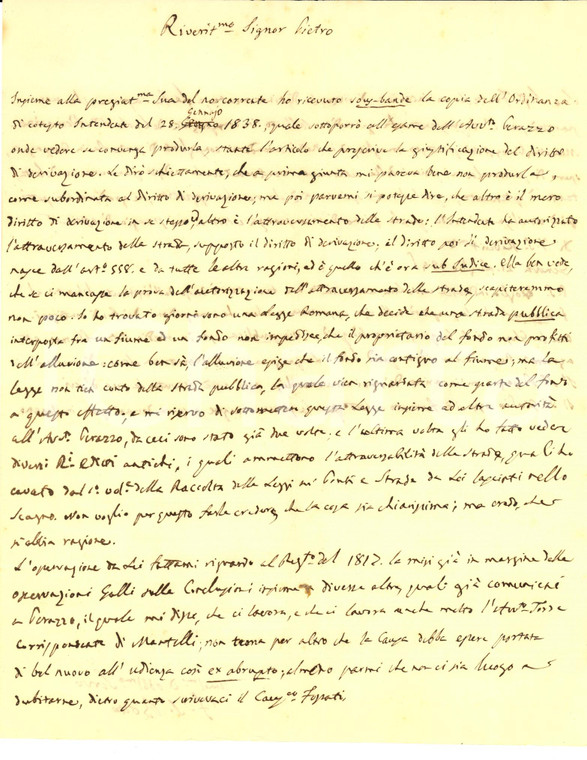 Riverit.mo Signor Pietro
Insieme alla pregiat.ma Sua del corrente ho ricevuto sous-bande la copia dell'Ordinanza
di cotesto Intendente del 28. Gennajo 1838., quale sottoporrò all'esame dell'Avv.o Perazzo
onde vedere se convenga produrla, stante l'articolo che prescrive la giustificazione del diritto
di derivazione. Le dirò schiettamente, che a prima giunta mi pareva bene non produrla,
come subordinata al diritto di derivazione, ma poi parvemi si potesse dire, che altro è il mero
diritto di derivazione in se stesso, altro è l'attraversamento delle strade: l'Intendente ha autorizzato
l'attraversamento della strada, supposto il diritto di derivazione, il diritto poi di derivazione
nasce dall'art.o 558. e da tutte le altre ragioni, ed è quello ch'è ora sub Judice. Ella ben vede,
che se ci mancasse la prova dell'autorizzazione dell'attraversamento della strada, scapiteremmo
non poco. Io ho trovato giorni sono una Legge Romana, che decide che una strada pubblica
interposta fra un fiume ed un fondo non impedisce, che il proprietario del fondo non profitti
dell'alluvione: come ben sà, l'alluvione esige che il fondo sia contiguo al fiume; ma la
legge non tien conto della strada pubblica, la quale vien riguardata come parte del fondo
a questo effetto, e mi riservo di sottomettere questa Legge insieme ad altre autorità
all'Avv.o Perazzo, da cui sono stato già due volte, e l'ultima volta gli ho fatto vedere
diversi R.i Editti antichi, i quali ammettono l'attraversabilità delle strade, quali ho
cavato dal 1.o vol.e della Raccolta delle Leggi su' Ponti e Strade da Lei lasciati nello
Scagno. Non voglio per questo farle credere, che la cosa sia chiarissima; ma credo, che
si abbia ragione.
L'osservazione da Lei fattami riguardo al Reg.to del 1817. la misi già in margine delle
osservazioni Galli sulle Conclusioni insieme a diverse altre, quali già comunicai
a Perazzo, il quale mi disse, che ci lavora, e che ci lavora anche molto l'Avv.o
corrispondente di Mantelli; non teme per altro che la Causa debba essere portata
di bel nuovo all'udienza così ex abrupto; almeno parmi che non ci sia luogo a
dubitarne, dietro quanto scrivevaci il Caus.co Fossati.